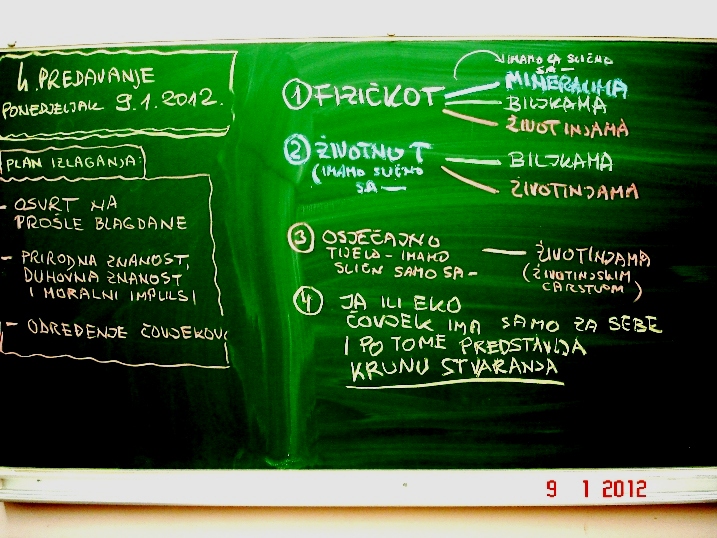 4. PREDAVANJE
PONEDJELJAK 9.1.2012.
PLAN IZLAGANJA:
- OSVRT NA
PROŠLE BLAGDANE
- PRIRODNA ZNANOST,
DUHOVNA ZNANOST
I MORALNI IMPULSI
- ODREĐENJE ČOVJEKOV
① FIZIČKO T
IMAMO SA SLIČNO
SA —
MINERALIMA
BILJKAMA
ŽIVOTINJAMA
② ŽIVOTNO T
(IMAMO SLIČNO
SA —
BILJKAMA
ŽIVOTINJAMA
③ OSJEĆAJNO
TIJELO - IMAMO
SLIČN SAMO SA -
ŽIVOTINJAMA
(ŽIVOTINJSKIM
CARSTVOM)
④ JA ILI EKO
ČOVJEK IMA SAMO ZA SEBE
I PO TOME PREDSTAVLJA
KRUNU STVARANJA
9 1 2012